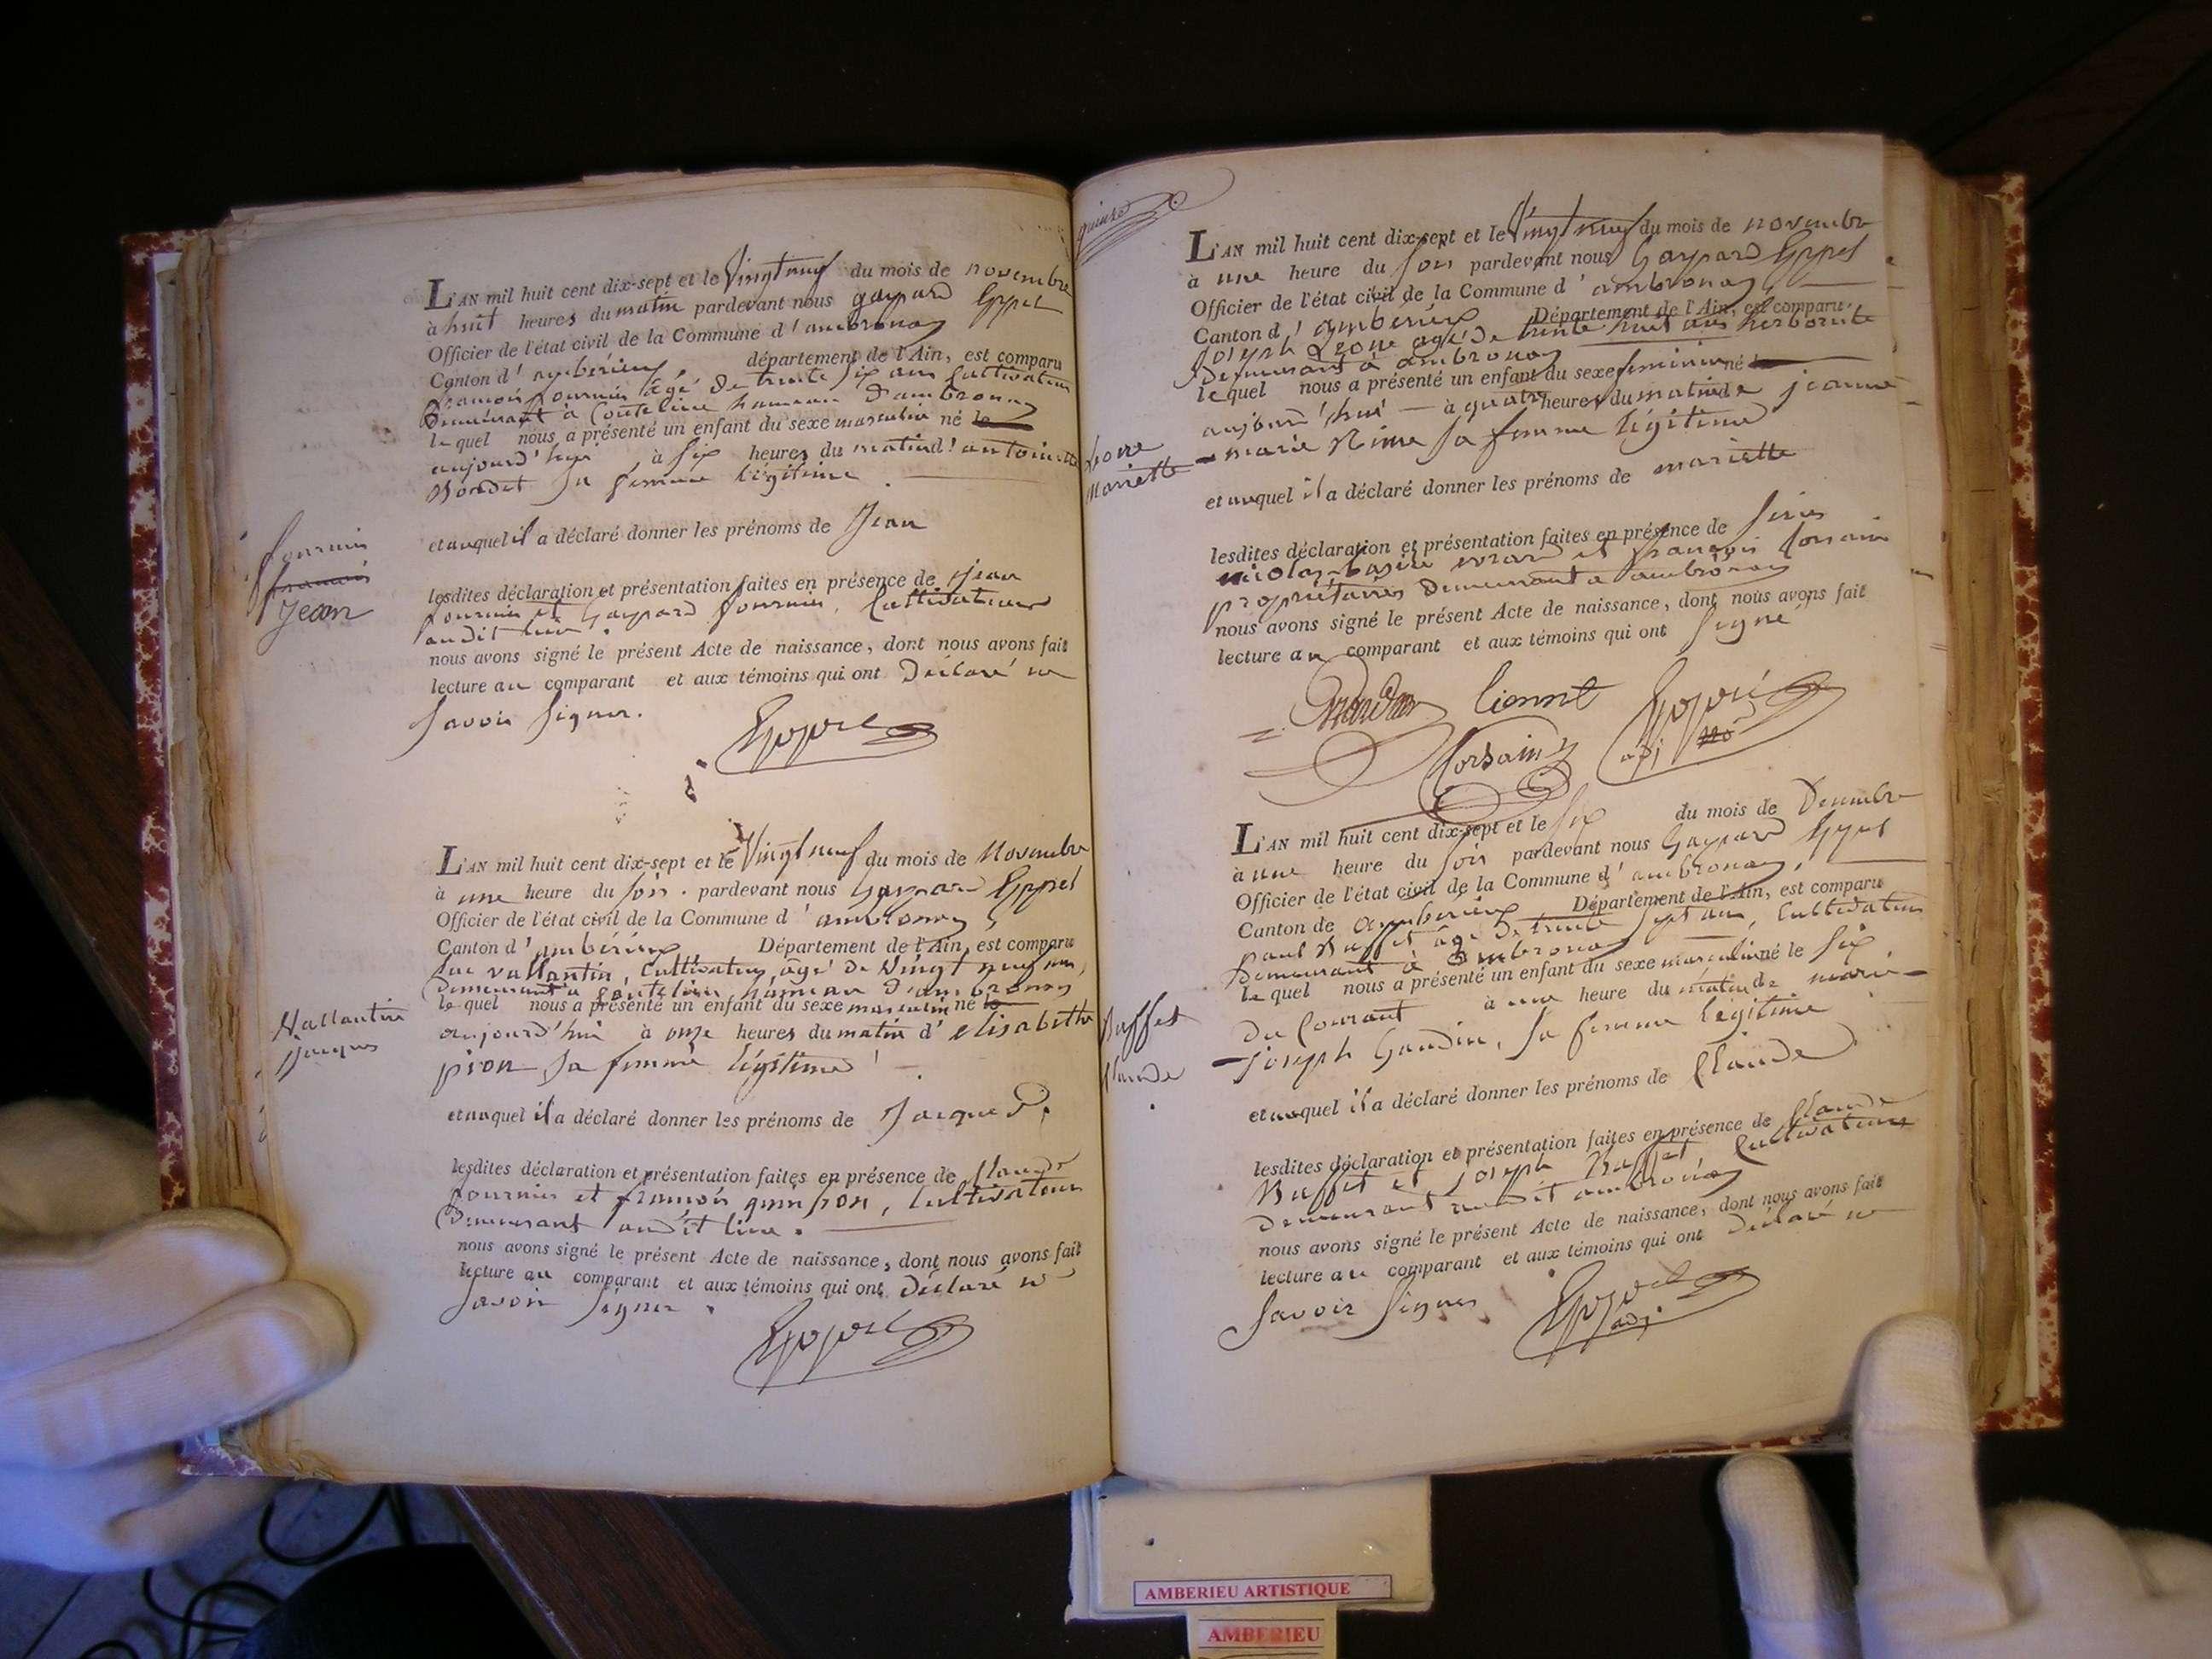 L'AN mil huit cent dix-sept et le Vingt neuf du mois de novembre
à huit heures du matin pardevant nous gaspard Eppel
Officier de l'état civil de la Commune d'ambronay
Canton d'ambérieux département de l'Ain, est comparu
françois fournier âgé de trente six ans Cultivateur
Demeurant à Coutelieu hameau d'ambronay
lequel nous a présenté un enfant du sexe masculin né le
aujourd'hui à six heures du matin d'antoinette
Bondet sa femme légitime
et auquel il a déclaré donner les prénoms de Jean
fournier
françois
Jean
lesdites déclaration et présentation faites en présence de Jean
fournier et Gaspard fournier, Cultivateurs
audit lieu.
nous avons signé le présent Acte de naissance, dont nous avons fait
lecture au comparant et aux témoins qui ont Déclaré ne
savoir signer.
L'AN mil huit cent dix-sept et le Vingt neuf du mois de Novembre
à une heure du soir. pardevant nous Gaspard Eppel
Officier de l'état civil de la Commune d'ambronay
Canton d'ambérieux Département de l'Ain, est comparu
Luc vallantin, Cultivateur, âgé de Vingt neuf ans,
Demeurant à Coutelieu, hameau d'ambronay
lequel nous a présenté un enfant du sexe masculin né le
aujourd'hui à onze heures du matin d'elisabethe
pion sa femme légitime
Vallantin
Jacques
et auquel il a déclaré donner les prénoms de Jacques.
lesdites déclaration et présentation faites en présence de Claude
fournier et françois, Cultivateurs
Demeurant audit lieu.
nous avons signé le présent Acte de naissance, dont nous avons fait
lecture au comparant et aux témoins qui ont Déclaré ne
savoir signer.
quinze
L'AN mil huit cent dix-sept et le Vingt neuf du mois de novembre
à une heure du soir pardevant nous Gaspard Eppel
Officier de l'état civil de la Commune d'ambronay
Canton d'ambérieux Département de l'Ain, est comparu
Joseph âgé de trente huit ans herboriste
Demeurant à ambronay
lequel nous a présenté un enfant du sexe feminin né le
aujourd'hui à quatre heures du matin de jeanne
marie sa femme légitime
Mariette
et auquel il a déclaré donner les prénoms de mariette
lesdites déclaration et présentation faites en présence de
nicolas et françois Corsain
propriétaires Demeurant à ambronay
nous avons signé le présent Acte de naissance, dont nous avons fait
lecture au comparant et aux témoins qui ont signé
Corsain
adj
L'AN mil huit cent dix-sept et le six du mois de Decembre
à une heure du soir pardevant nous Gaspard Eppel
Officier de l'état civil de la Commune d'ambronay,
Canton de ambérieux Département de l'Ain, est comparu
paul Buffet âgé de trente sept ans, Cultivateur
Demeurant à ambronay
lequel nous a présenté un enfant du sexe masculin né le six
du Courant à une heure du matin de marie
joseph Gaudin, sa femme légitime
Buffet
Claude
et auquel il a déclaré donner les prénoms de Claude
lesdites déclaration et présentation faites en présence de Claude
Buffet et joseph Buffet, Cultivateurs
demeurant audit ambronay
nous avons signé le présent Acte de naissance, dont nous avons fait
lecture au comparant et aux témoins qui ont Déclaré ne
savoir signer
adj
AMBERIEU ARTISTIQUE
AMBERIEU